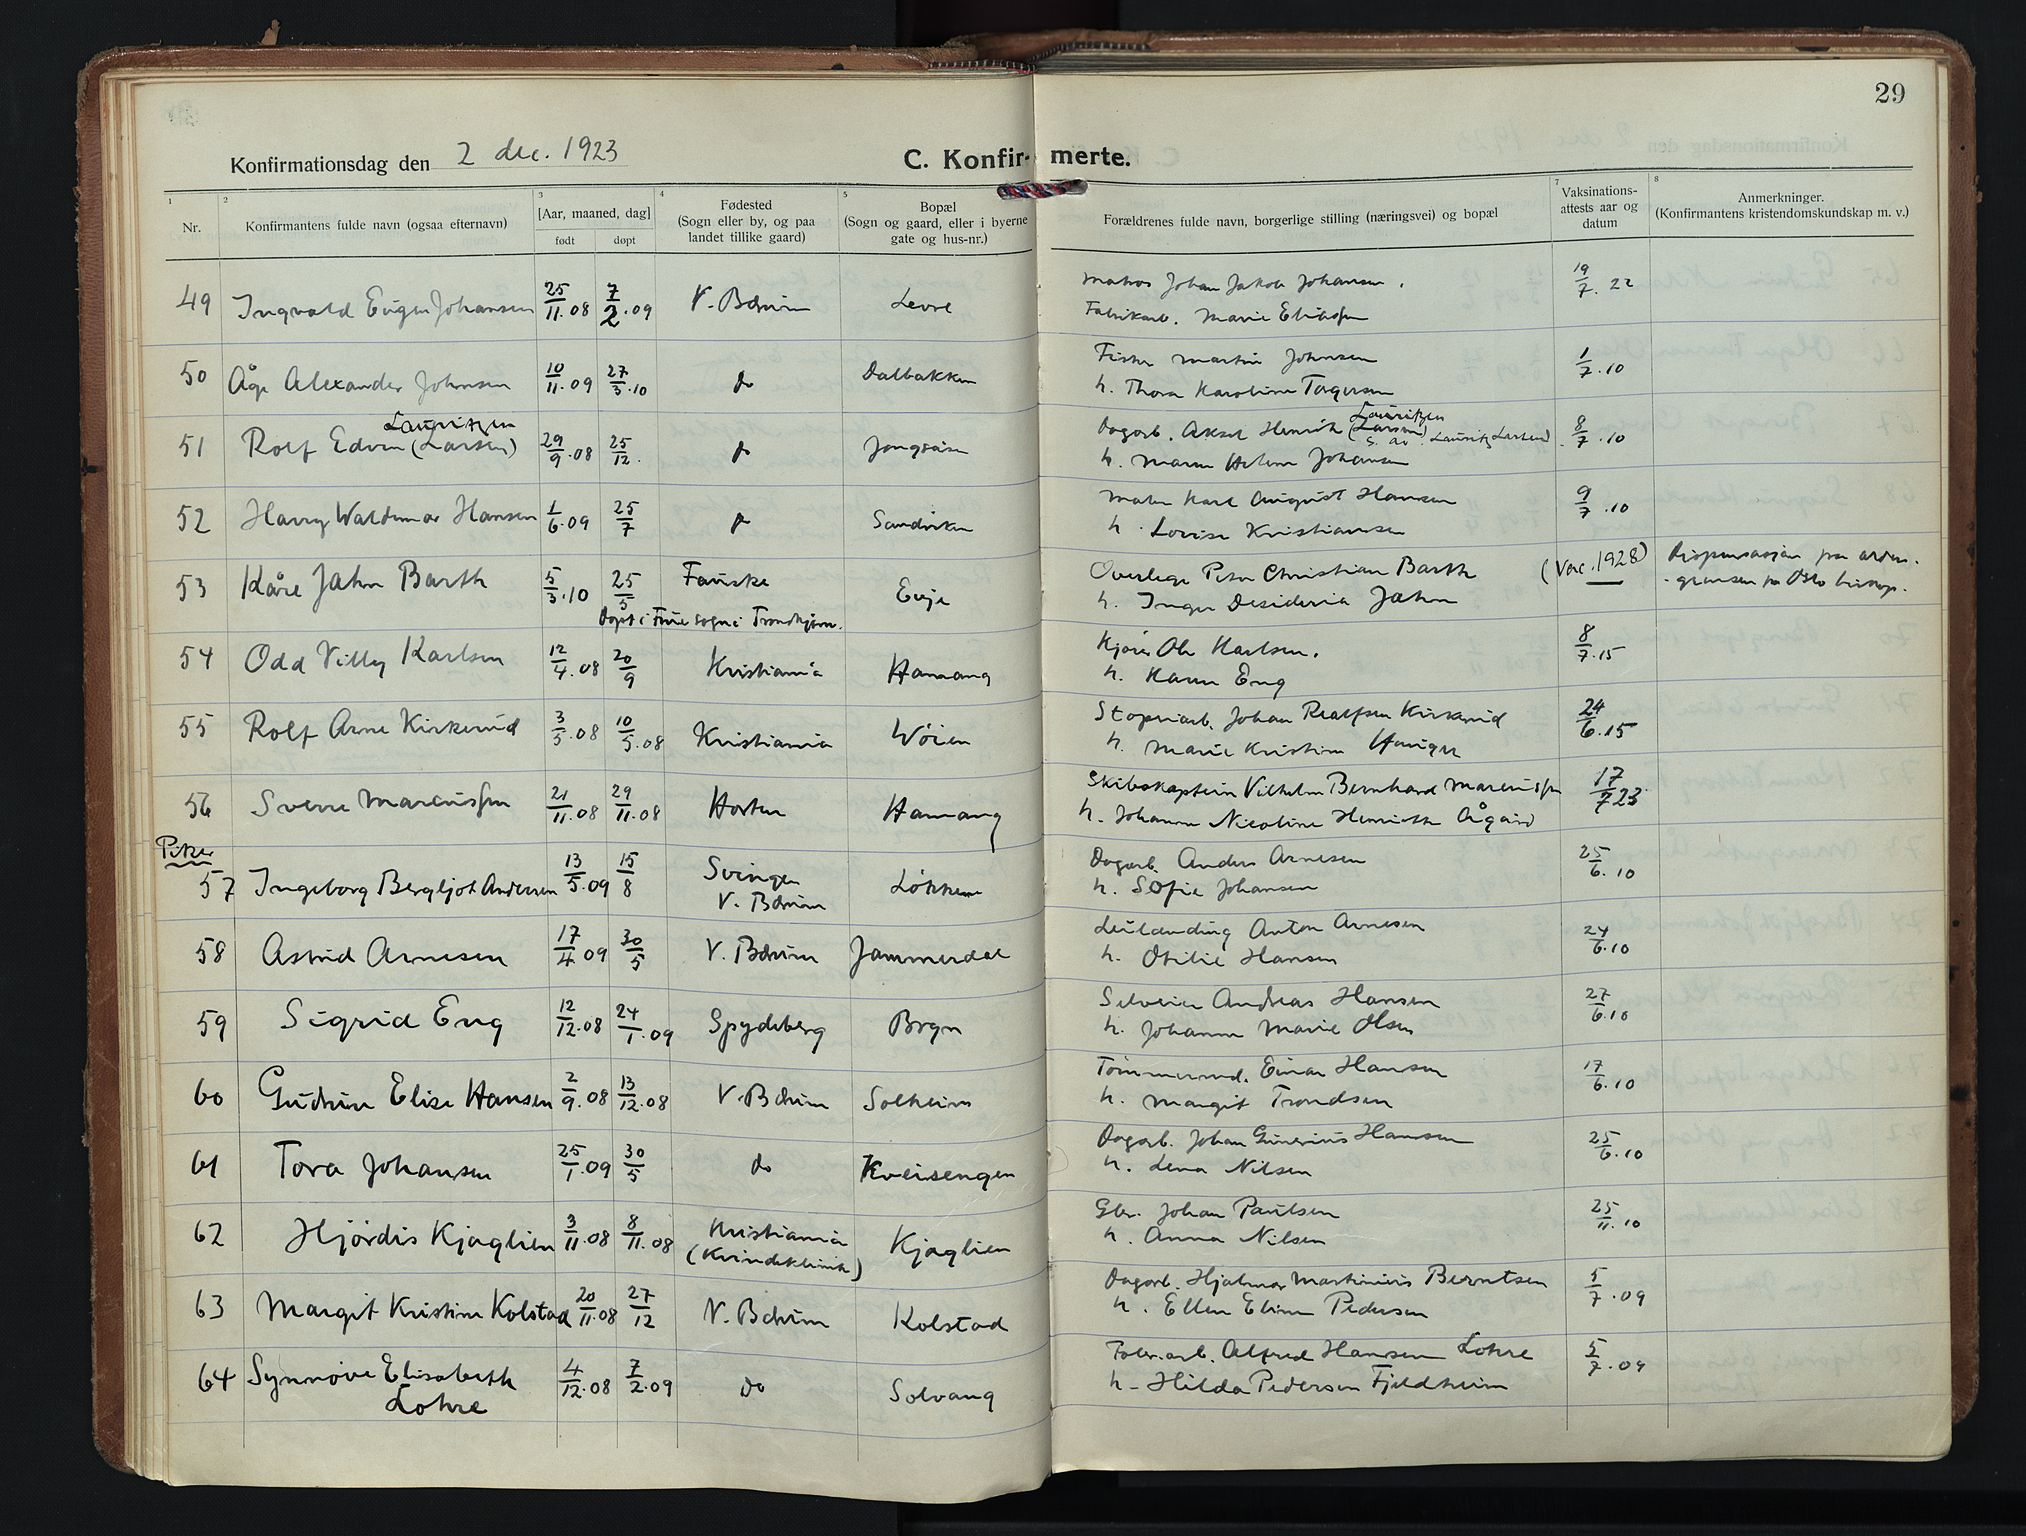 29
Konfirmationsdag den 2 dec. 1923
C. Konfir- merte.
1 2 3 4 5 7 8
Nr.
Konfirmantens fulde navn (ogsaa efternavn)
[Aar, maaned, dag]
født døpt
Fødested
(Sogn eller by, og paa
landet tillike gaard)
Bopæl
(Sogn og gaard, eller i byerne
gate og hus-nr.)
Forældrenes fulde navn, borgerlige stilling (næringsvei) og bopæl
Vaksinations-
attests aar og
datum
Anmerkninger.
(Konfirmantens kristendomskundskap m. v.)
49 Ingvald Eugen Johansen 25/11.08 7/2.09 V. Bærum Levre Matros Johan Jakob Johansen. 19/7.22
Fabrikarb. Marie
50 Åge Alexander Johnsen 10/11.09 27/3.10 do Dalbakken Fisker Martin Johnsen 1/7.10
h. Thora Karoline Torgersen
Lauritzen Lauritzen
51 Rolf Edvin (Larsen) 29/9.08 25/12. do Dagarb. Aksel Henrik (Larsen) 8/7.10
h. Maren Helene Johansen
52 Harry Waldemar Hansen 1/6.09 25/7 do Sandviken Maler Karl August Hansen 9/7.10
h. Lovise Kristiansen
53 Kåre Jahn Barth 5/3.10 25/5 Fauske Evje Overlege Peter Christian Barth (Vac. 1928) Dispensasjon fra alders-
h. Inger Desideria Jahn -grensen fra Oslo biskop.
Døpt i Frue sogn i Trondhjem.
54 Odd Villy Karlsen 12/4.08 20/9 Kristiania Hamang Kjører Ole Karlsen. 8/7.15
h. Karen Eng
55 Rolf Arne Kirkerud 3/5.08 10/5.08 Kristiania Wøien Støperiarb. Johan Kirkerud 24/6.15
h. Marie Kristine Hauger
56 Sverre Marcussen 21/11.08 29/11.08 Horten Hamang Skibskaptein Vilhelm Bernhard Marcussen 17/7 23
h. Johanne Nicoline Henriette Ågård
Piker
57 Ingeborg Bergljot Andersen 13/5.09 15/8 Svingen Løkken Dagarb. Anders Arnesen 25/6.10
V. Bærum h. Sofie Johansen
58 Astrid Arnesen 17/4 09 30/5 V. Bærum Jammerdal Leilending Anton Arnesen 24/6.10
h. Otilie Hansen
59 Sigrid Eng 12/12.08 24/1.09 Spydeberg Bryn Andreas Hansen 27/6.10
h. Johanne Marie Olsen
60 Gudrun Elise Hansen 2/9.08 13/12.08 V. Bærum Solheim Tømmermd. Einar Hansen 17/6.10
h. Margit Trondsen
61 Tora Johansen 25/1.09 30/5 do Kveisengen Dagarb. Johan Gunerius Hansen 25/6.10
h. Lena Nilsen
62 Hjørdis Kjaglien 3/11.08 8/11.08 Kristiania Kjaglien Gbr. Johan Paulsen 25/11.10
(Kvindeklinik) h. Anna Nilsen
63 Margit Kristine Kolstad 20/11.08 27/12 V. Bærum Kolstad Dagarb. Hjalmar Martinius Berntsen 5/7.09
h. Ellen Eline Pedersen
64 Synnøve Elisabeth 4/12.08 7/2.09 do Solvang Fabr.arb. Alfred Hansen Lohre 5/7.09
Lohre h. Hilda Pedersen Fjeldheim